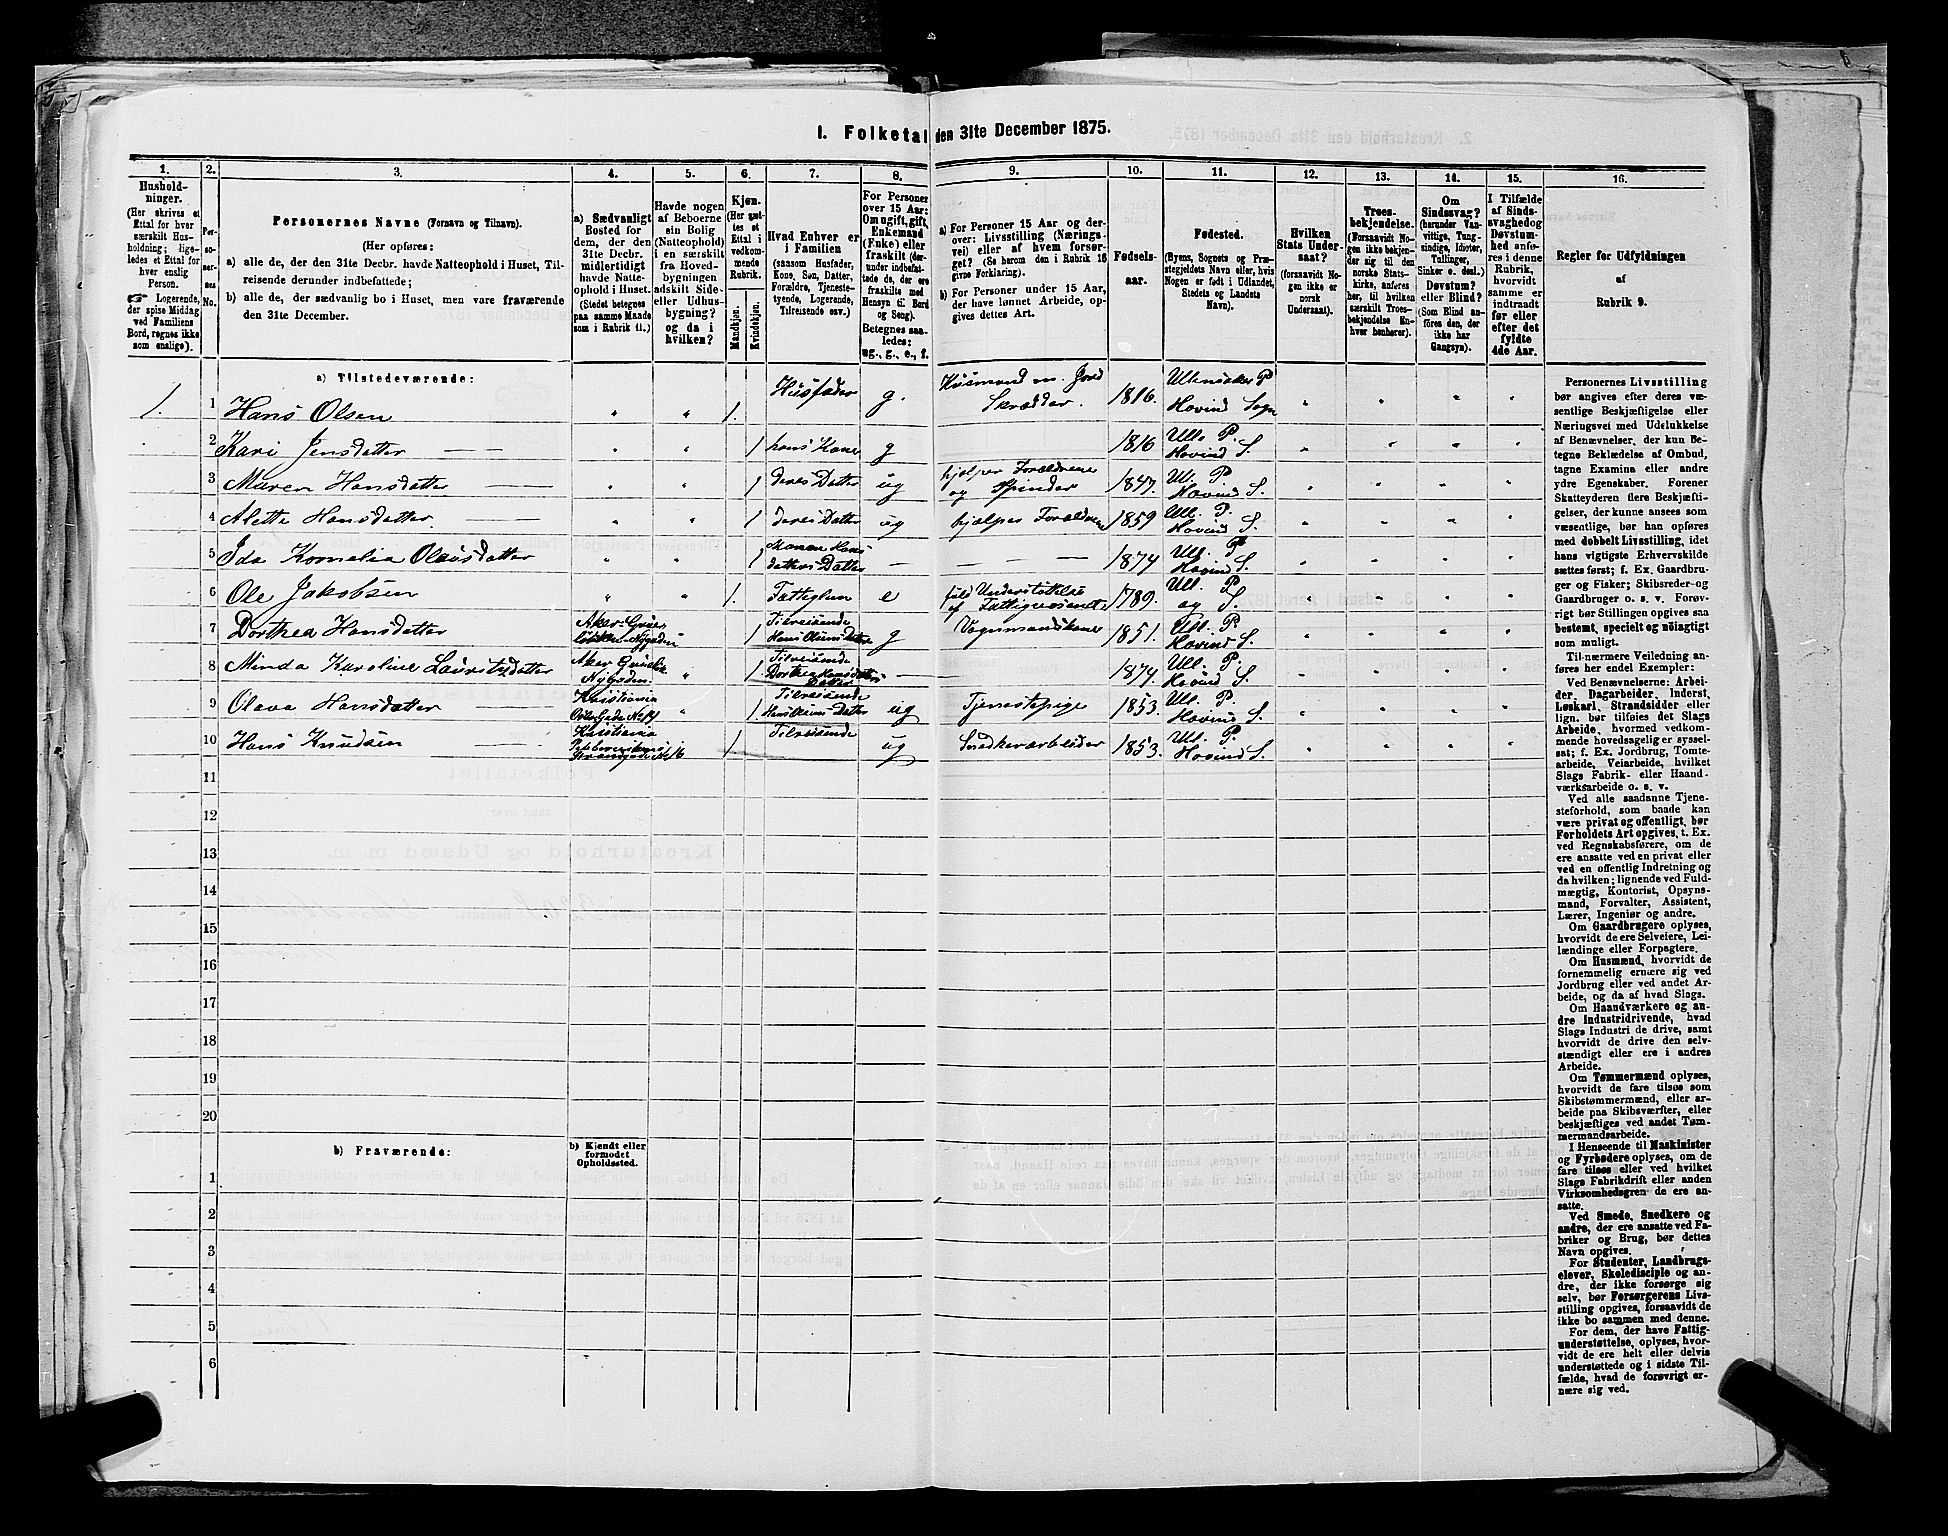 1. Folketal den 31te December 1875.
1.
Hushold-
ninger.
(Her skrives et
Ettal for hver
særskilt Hus-
holdning; lige-
ledes et Ettal for
hver enslig
Person.
☞ Logerende,
der spise Middag
ved Familiens
Bord, regnes ikke
som enslige).
2.
Per-
so-
ner-
nes
No.
3.
Personernes Navne (Fornavn og Tilnavn).
(Her opføres:
a) alle de, der den 31te Decbr. havde Natteophold i Huset, Til-
reisende derunder indbefattede;
b) alle de, der sædvanlig bo i Huset, men vare fraværende
den 31te December.
4.
a) Sædvanligt
Bosted for
dem, der den
31te Decbr.
midlertidigt
havde Natte-
ophold i Huset.
(Stedet betegnes
paa samme Maade
som i Rubrik 11.)
5.
Havde nogen
af Beboerne
sin Bolig
(Natteophold)
i en særskilt
fra Hoved-
bygningen
adskilt Side-
eller Udhus-
bygning?
og da i
hvilken?
6.
Kjøn.
(Her sæt-
tes et
Ettal i
vedkom-
mende
Rubrik.
Mandkjøn.
Kvindekjøn.
7.
Hvad Enhver er
i Familien
(saasom Husfader,
Kone, Søn, Datter,
Forældre, Tjeneste-
tyende, Logerende,
Tilreisende osv.)
8.
For Personer
over 15 Aar:
Om ugift, gift,
Enkemand
(Enke) eller
fraskilt (der-
under indbefat-
tede de, der ere
fraskilte med
Hensyn til Bord
og Seng).
Betegnes saa-
ledes:
ug., g., e., f.
9.
a) For Personer 15 Aar og der-
over: Livsstilling (Nærings-
vei) eller af hvem forsør-
get? (Se herom den i Rubrik 16
givne Forklaring).
b) For Personer under 15 Aar,
der have lønnet Arbeide, op-
gives dettes Art.
10.
Fødsels-
aar.
11.
Fødested.
(Byens, Sognets og Præ-
stegjeldets Navn eller, hvis
Nogen er født i Udlandet,
Stedets og Landets
Navn).
12.
Hvilken
Stats Under-
saat?
(forsaavidt No-
gen ikke er
norsk
Undersaat).
13.
Troes-
bekjendelse.
(Forsaavidt No-
gen ikke bekjen-
der sig til den
norske Stats-
kirke, anføres
her, til hvilken
særskilt Troes-
bekjendelse En-
hver henhører).
14.
Om
Sindssvag?
(herunder Van-
vittige, Tung-
sindige, Idioter,
Tullinger,
Sinker o. desl.)
Døvstum?
eller Blind?
(Som Blind an-
føres den, der
ikke har
Gangsyn).
15.
I Tilfælde
af Sinds-
svaghed og
Døvstum-
hed anfø-
res i denne
Rubrik,
hvorvidt
samme er
indtraadt
før eller
efter det
fyldte
4de Aar.
16.
Regler for Udfyldningen
af
Rubrik 9.
a) Tilstedeværende:
1. 1 Hans Olsen " " 1. Husfader g. Husmand m. Jord Skrædder. 1816. Ullensaker P Hovind Sogn " " " "
2 Kari Jensdatter " " 1 hans Kone g 1816 Ull. P. Hovind S. " " " "
3 Maren Hansdatter " " 1 deres Datter ug hjælper Forældrene og Spinder 1847. Ull. P. Hovind S. " " " "
4 Alette Hansdatter " " 1 deres Datter ug hjælper Forældrene 1859 Ull. P. Hovind S. " " " "
5 Ida Kornelia Olausdatter " " 1 Maren Hans datters Datter — — 1874 Ull. P Hovind S. " " " "
6 Ole Jakobsen " " 1. Fattiglem e fuld Understøttelse af Fattigvæsenet 1789. Ull. P. og S. " " " "
7 Dorthea Hansdatter Aker Grüner løkken Nygaden 1 Tilreisende Hans Olsens Datter g Vognmandskone 1851. Ull. P. Hovind S. " " " "
8 Minda Karoline Lauritzdatter Aker Nygaden " 1 Tilreisende Dorthea Hansdatters Datter — — 1874. Ull. P. Hovind S. " " " "
9 Olava Hansdatter Kristiania Gade No 14 " 1 Tilreisende Hans Olsens Datter ug Tjenestepige 1853. Ull. P. Hovind S. " " " "
10 Hans Knudsen Kristiania 1. Tilreisende ug Snedkerarbeider 1853. Ull. P. Hovind S. " " " "
11
12
13
14
15
16
17
18
19
20
b) Fraværende:
b) Kjendt eller
formodet
Opholdssted.
1
2
3
4
5
6
Personernes Livsstilling
bør angives efter deres væ-
sentlige Beskjæftigelse eller
Næringsvei med Udelukkelse
af Benævnelser, der kun be-
tegne Beklædelse af Ombud,
tagne Examina eller andre
ydre Egenskaber. Forener
Skatteyderen flere Beskjæfti-
gelser, der kunne ansees som
væsentlige, bør han opføres
med dobbelt Livsstilling, idet
hans vigtigste Erhvervskilde
sættes først; f. Ex. Gaardbru-
ger og Fisker; Skibsreder og
Gaardbruger o. s. v. Forøv-
rigt bør Stillingen opgives saa
bestemt, specielt og nöiagtigt
som muligt.
Til nærmere Veiledning an-
føres her endel Exempler:
Ved Benævnelserne: Arbei-
der, Dagarbeider, Inderst,
Løskarl, Strandsidder eller
lign. bør tilføies det Slags
Arbeide, hvormed vedkom-
mende hovedsagelig er syssel-
sat; f. Ex. Jordbrug, Tomte-
arbeide, Veiarbeide, hvilket
Slags Fabrik- eller Haand-
værksarbeide o. s. v.
Ved alle saadanne Tjene-
steforhold, som baade kan
være privat og offentligt, bør
Forholdets Art opgives, t. Ex.
ved Regnskabsførere, om de
ere ansatte ved en privat eller
ved en offentlig Indretning og
da hvilken; lignende ved Fuld-
mægtig, Kontorist, Opsyns-
mand, Forvalter, Assistent,
Lærer, Ingeniør og andre.
Om Gaardbrugere oplyses,
hvorvidt de ere Selveiere, Lei-
lændinge eller Forpagtere.
Om Husmænd, hvorvidt de
fornemmelig ernære sig ved
Jordbrug eller ved andet Ar-
beide, og da af hvad Slags.
Om Haandværkere og an-
dre Industridrivende, hvad
Slags Industri de drive, samt
hvorvidt de drive den selv-
stændigt eller ere i andres
Arbeide.
Om Tømmermænd oplyses,
hvorvidt de fare tilsøs som
Skibstømmermænd, eller ar-
beide paa Skibsværfter, eller
beskjæftiges ved andet Tøm-
mermandsarbeide.
I Henseende til Maskinister
og Fyrbødere oplyses, om de
fare tilsøs eller ved hvilket
Slags Fabrikdrift eller anden
Virksomhedsgren de ere an-
satte.
Ved Smede, Snedkere og
andre, der ere ansatte ved Fa-
briker og Brug, bør dettes
Navn opgives.
For Studenter, Landbrugs-
elever, Skoledisciple og an-
dre, der ikke forsørge sig
selv, bør Forsørgerens Livs-
stilling opgives, forsaavidt de
ikke bo sammen med denne.
For dem, der have Fattig-
understøttelse, oplyses, hvor-
vidt de ere helt eller delvis
understøttede og i sidste Til-
fælde, hvad de forøvrigt er-
nære sig ved.